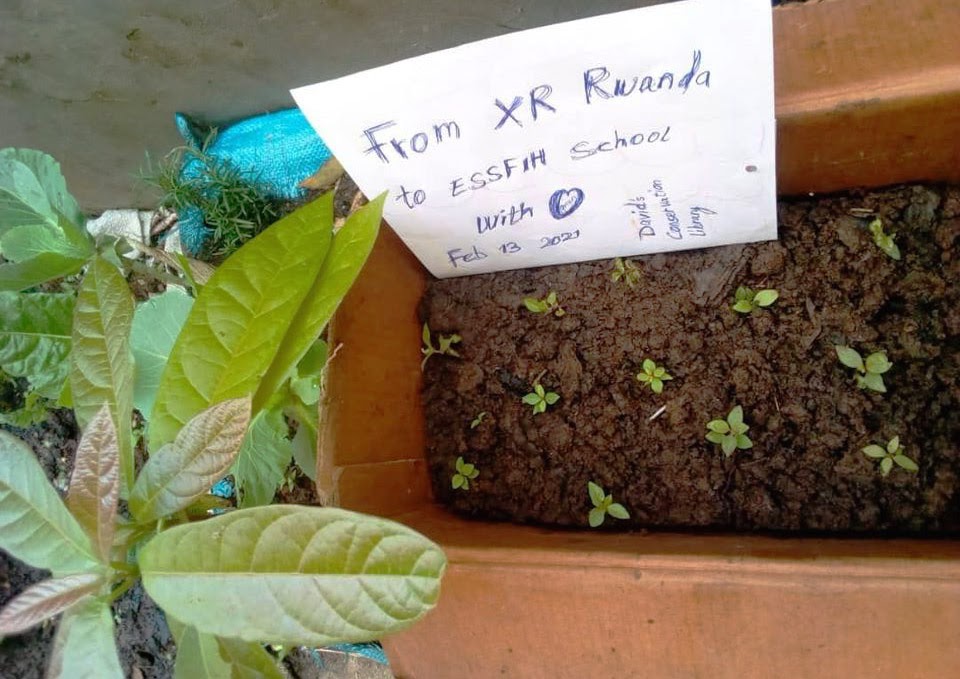 From XR Rwanda
to ESSFIH School
with
Feb 13 2021
David's
Conservation
Library